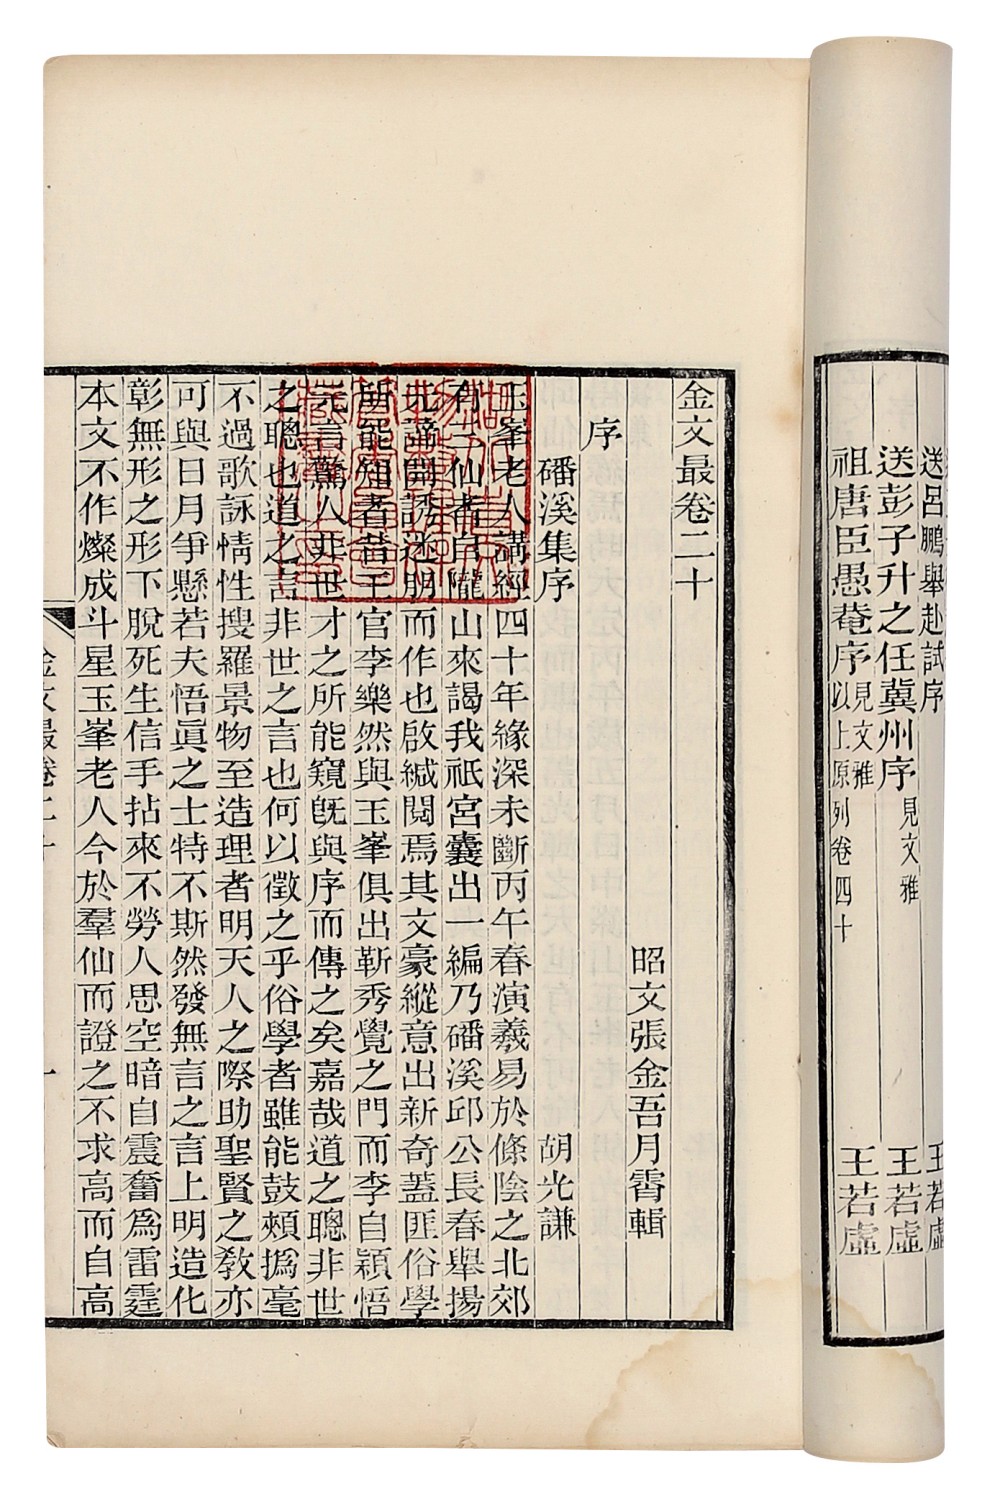 送呂鵬舉赴試序 王若虛
送彭子升之任冀州序見文雅 王若虛
祖唐臣愚菴序見文雅以上原列卷四十 王若虛
金文最卷二十
昭文張金吾月霄輯
序
磻溪集序 胡光謙
玉峯老人講經四十年緣深未斷丙午春演羲易於條陰之北郊
有三仙者自隴山來謁我祇宮囊出一編乃磻溪邱公長春舉揚
元諦開誘迷朋而作也啟緘閱焉其文豪縱意出新奇蓋匪俗學
所能知者昔王官李樂然與玉峯俱出靳秀覺之門而李自穎悟
元言驚人非世才之所能窺旣與序而傳之矣嘉哉道之聰非世
之聰也道之言非世之言也何以徵之乎俗學者雖能鼓頰撝毫
不過歌詠情性搜羅景物至造理者明天人之際助聖賢之敎亦
可與日月爭懸若夫悟眞之士特不斯然發無言之言上明造化
彰無形之形下脫死生信手拈來不勞人思空暗自震奮爲雷霆
本文不作燦成斗星玉峯老人今於羣仙而證之不求高而自高
金文最卷二十 一